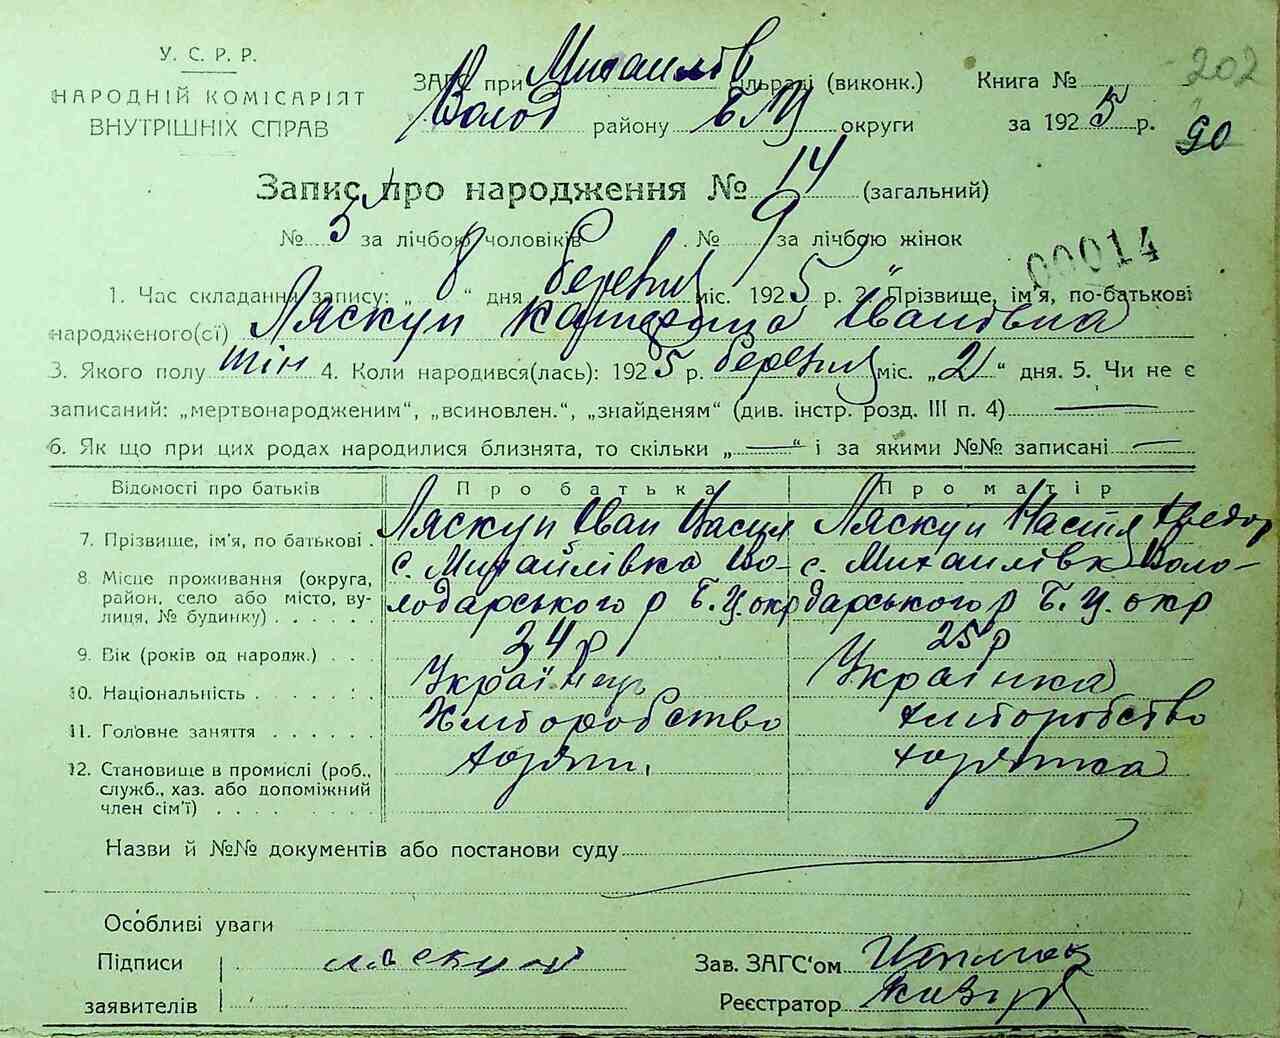 У. С. Р. Р.
НАРОДНІЙ КОМІСАРІЯТ
ВНУТРІШНІХ СПРАВ
ЗАГС при Михайлів сільраді (виконк.)
Волод району Б.Ц округи
Книга №
за 1925 р.
202
90
Запис про народження № 14 (загальний)
№ 5 за лічбою чоловіків № 9 за лічбою жінок
00014
1. Час складання запису: „8“ дня березня міс. 1925 р. 2. Прізвище, ім'я, по-батькові
народженого(сї) Ляскун Катерина Іванівна
3. Якого полу жін 4. Коли народився(лась): 1925 р. березня міс. „2“ дня. 5. Чи не є
записаний: „мертвонародженим“, „всиновлен.“, „знайденям“ (див. інстр. розд. III п. 4)
6. Як що при цих родах народилися близнята, то скільки „—“ і за якими №№ записані —
Відомості про батьків Про батька Про матір
7. Прізвище, ім'я, по батькові . Ляскун Іван Васил Ляскун Настя Федор
8. Місце проживання (округа, район, село або місто, вулиця, № будинку) с. Михайлівка Володарського р Б.Ц. окр с. Михайлівк Володарського р Б.Ц. окр
9. Вік (років од народж.) . . . 34 р 25 р
10. Національність . . . . . . Українець Українка
11. Головне заняття . . . . . . Хліборобство Хліборобство
12. Становище в промислі (роб., служб., хаз. або допоміжний член сім'ї)
Назви й №№ документів або постанови суду
Особливі уваги
Підписи
заявителів
Ляскун
Зав. ЗАГС'ом
Реєстратор